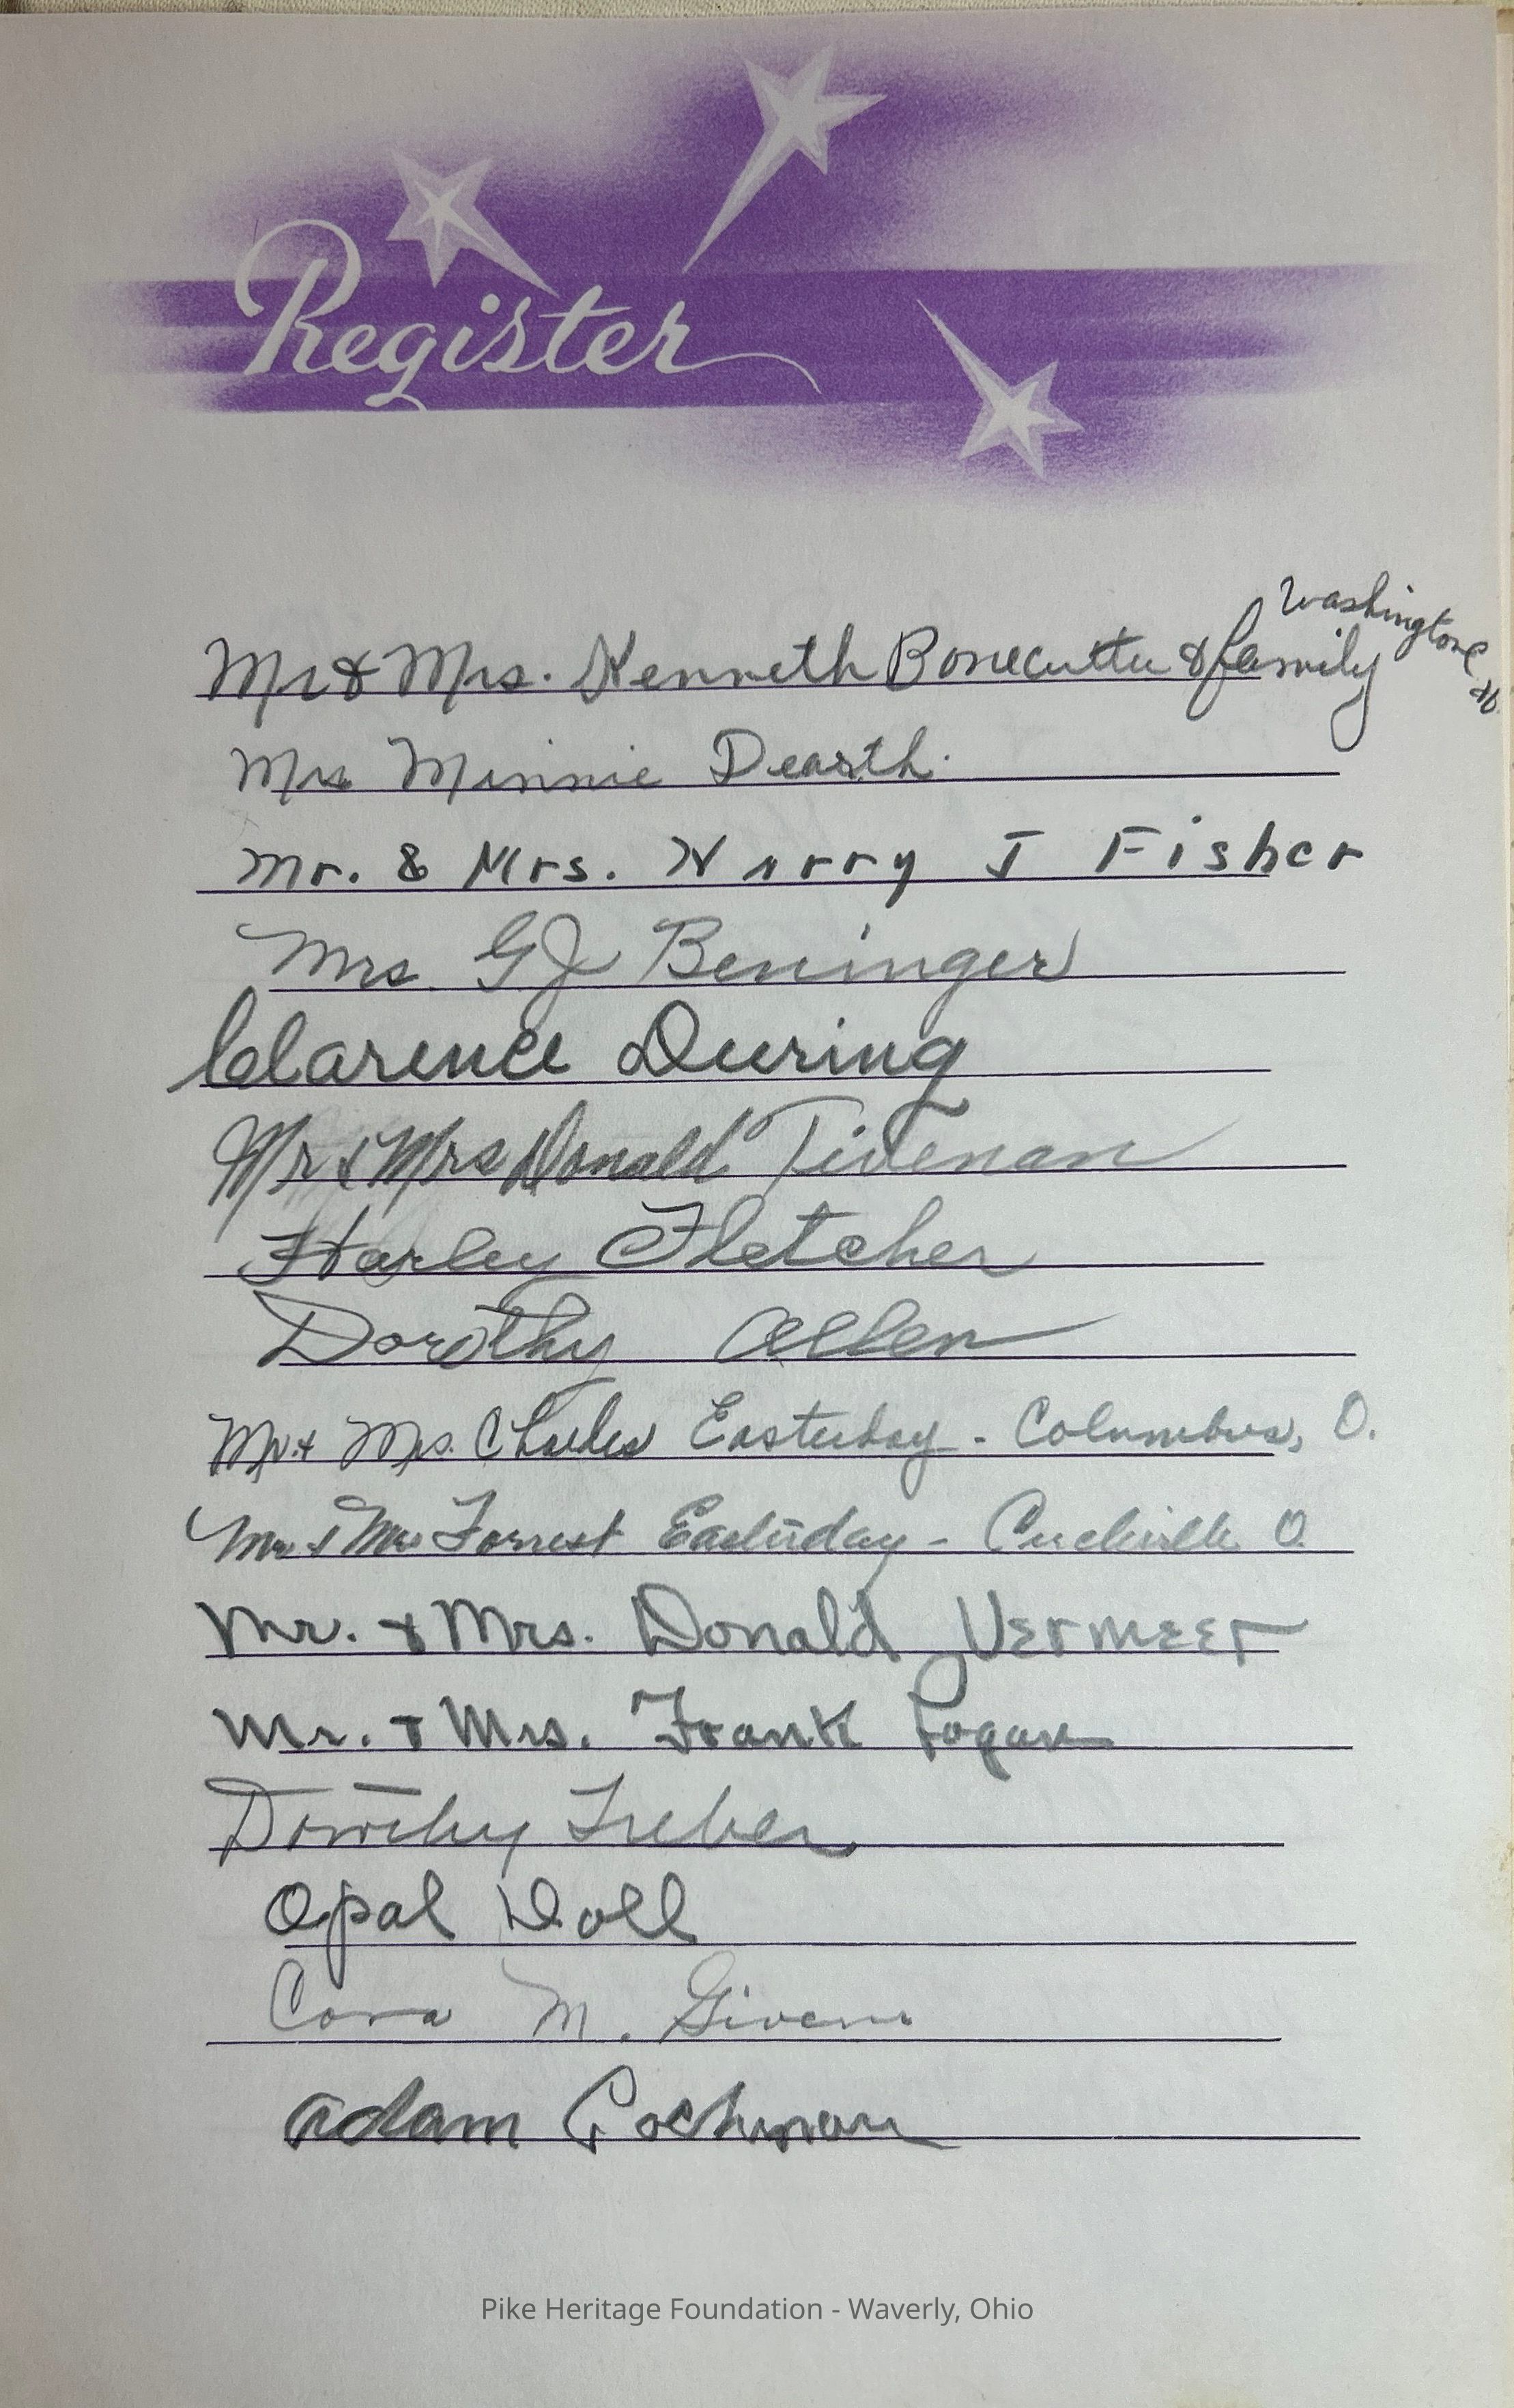 Register
Washington C.H.
Mr & Mrs. Kenneth Bonecutter & family
Mrs Minnie Dearth.
Mr. & Mrs. Harry J Fisher
Mrs. G J Beninger
Clarence Duering
Mr & Mrs Donald Tideman
Harley Fletcher
Dorothy Allen
Mr. + Mrs. Charles Easterday - Columbus, O.
Mr & Mrs Forrest Easterday - Circleville O.
Mr. & Mrs. Donald Vermeer
Mr. & Mrs. Frank
Dorothy
Opal Doll
Cora M. Givens
Adam
Pike Heritage Foundation - Waverly, Ohio